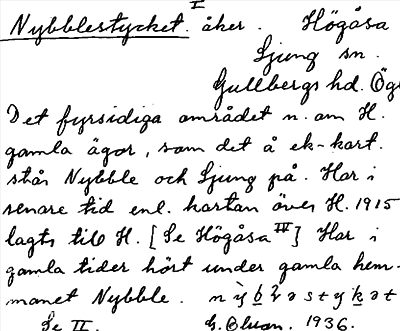 I
Nybblestycket. åker. Högåsa
Ljung sn.
Gullbergs hd. Ög
Det fyrsidiga området n. om H.
gamla ägor, som det å ek-kart.
står Nybble och Ljung på. Har i
senare tid enl. kartan över H. 1915
lagts till H. [Se Högåsa III] Har i
gamla tider hört under gamla hem-
manet Nybble.
Se II. G. Olson. 1936.